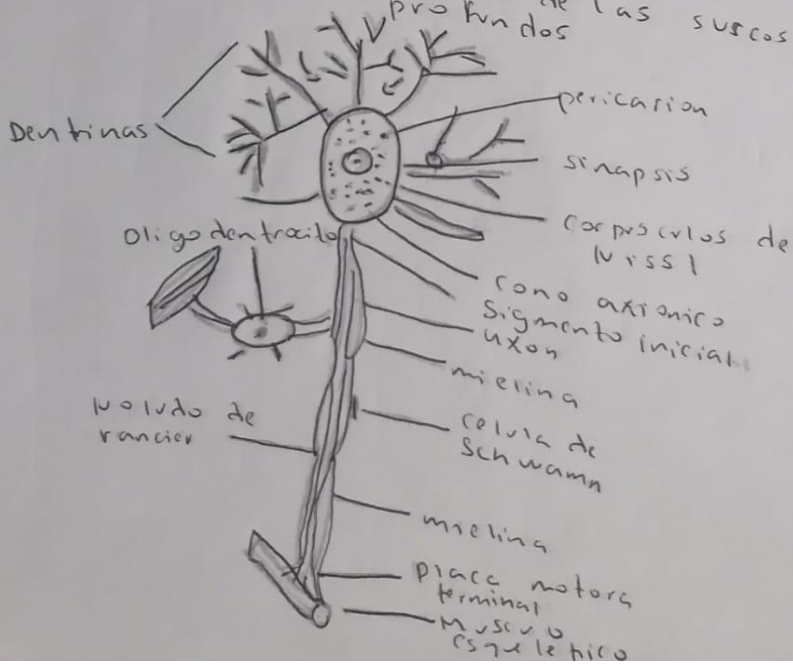 de las surcos
profundos
Dentrinas
pericarion
sinapsis
Oligodentrocito
corpusculos de
Nissl
cono axionico
sigmento inicial
axon
mielina
Noludo de
rancier
celula de
Schwamn
mielina
placa motora
terminal
Musculo
esqueletico